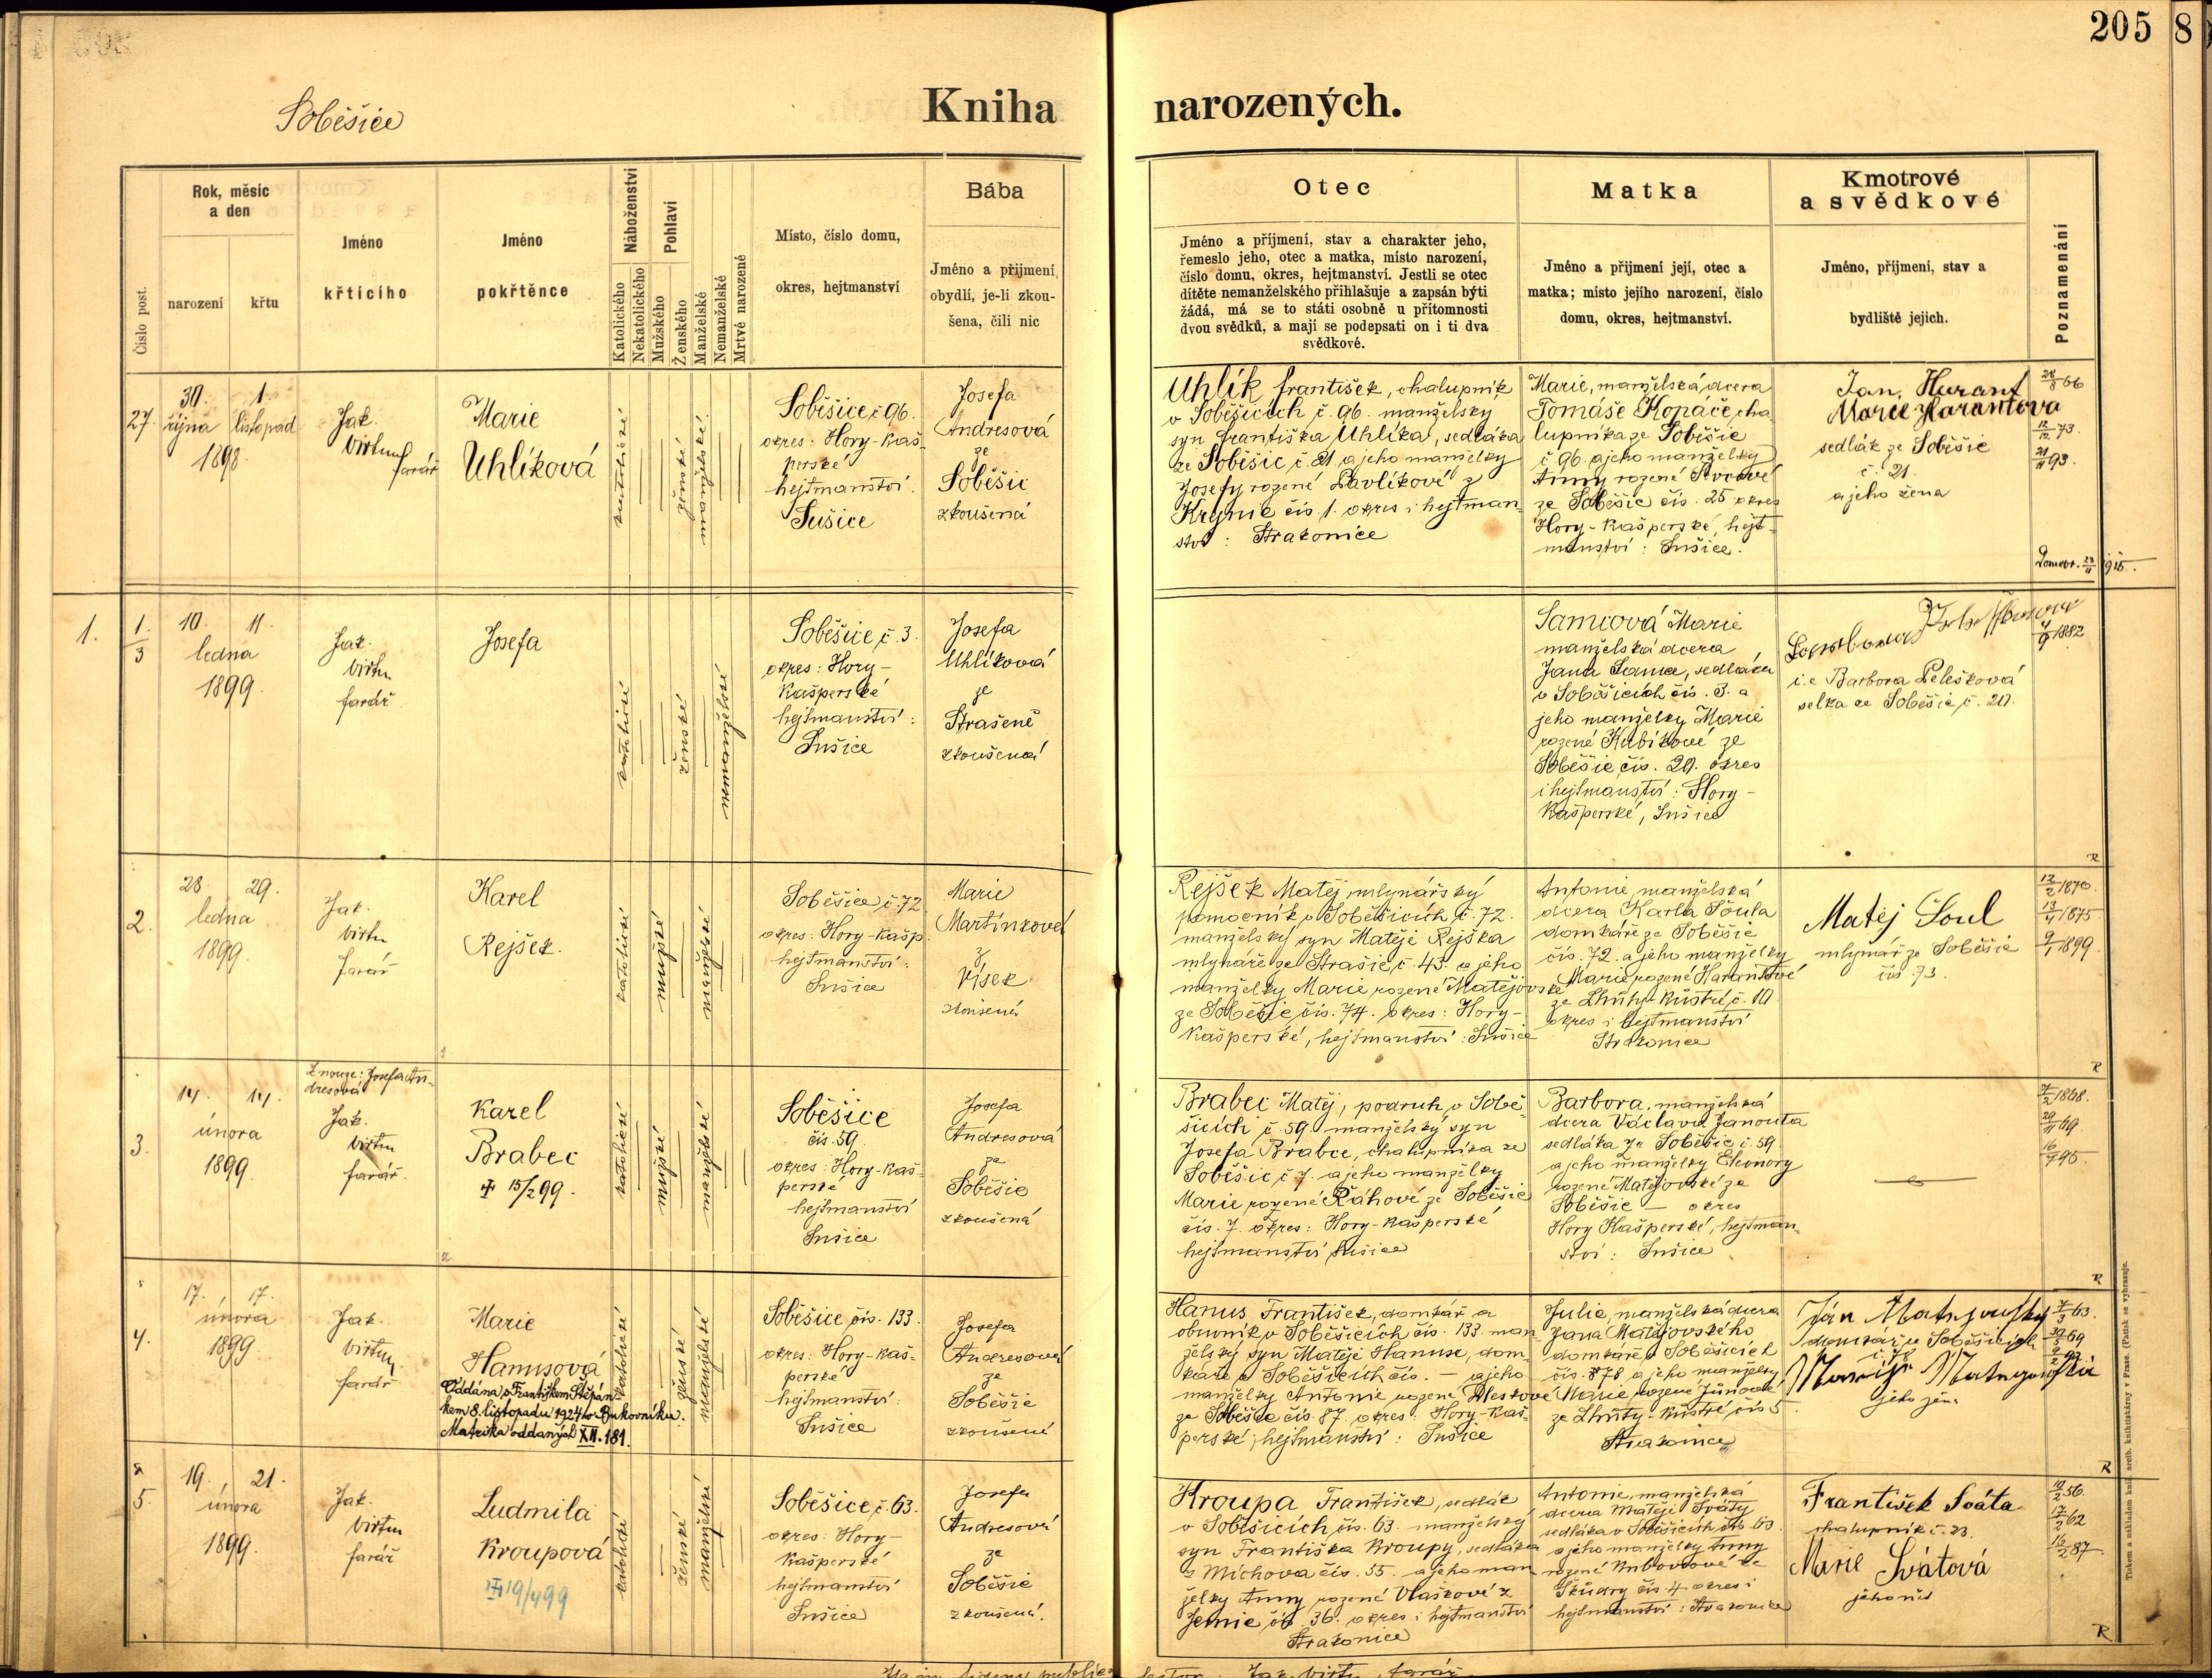 205 8
Soběšice
Kniha narozených.
Číslo post.
Rok, měsíc
a den
narození
křtu
Jméno
křtícího
Jméno
pokřtěnce
Náboženství
Katolického
Nekatolického
Pohlaví
Mužského
Ženského
Manželské
Nemanželské
Mrtvé narozené
Místo, číslo domu,
okres, hejtmanství
Bába
Jméno a přijmení,
obydlí, je-li zkou-
šena, čili nic
Otec
Jméno a příjmení, stav a charakter jeho,
řemeslo jeho, otec a matka, místo narození,
číslo domu, okres, hejtmanství. Jestli se otec
dítěte nemanželského přihlašuje a zapsán býti
žádá, má se to státi osobně u přítomnosti
dvou svědků, a mají se podepsati on i ti dva
svědkové.
Matka
Jméno a přijmení její, otec a
matka; místo jejího narození, číslo
domu, okres, hejtmanství.
Kmotrové
a svědkové
Jméno, příjmení, stav a
bydliště jejich.
Poznamenání
27.
30. 1.
října listopad
1898
Jak.
Virtu
farář
Marie
Uhlíková
katolické
ženské
manželské
Soběšice č 96.
okres: Hory-Kaš-
perské
hejtmanství.
Sušice
Josefa
Andresová
ze
Soběšic
zkoušená
Uhlík František, chalupník
v Soběšicích č. 96. manželský
syn Františka Uhlíka, sedláka
ze Soběšic č. 21 a jeho manželky
Josefy rozené Pavlíkové z
čís. 1. okres i hejtman-
ství: Strakonice
Marie, manželská dcera
Tomáše Kopáče, cha-
lupníka ze Soběšic
č 96. a jeho manželky
Anny rozené
ze Soběšic čís. 25 okres
Hory-Kašperské, hejt-
manství: Sušice.
Jan, Harant
Marie Harantova
sedlák ze Soběšic
č. 21.
a jeho žena
28/3 66
12/12 73.
21/11 93.
1915.
1.
1/3
10. 11.
ledna
1899.
Jak.
Virtu
farář
Josefa
katolické
ženské
nemanželské
Soběšice, č. 3.
okres: Hory-
Kašperské
hejtmanství:
Sušice
Josefa
Uhlíková
ze
Strašeně
zkoušená
Samcová Marie
manželská dcera
Jana Samce, sedláka
v Soběšicích čís. 3. a
jeho manželky Marie
rozené Kubíkové ze
Soběšic čís. 20. okres
i hejtmanství: Hory-
Kašperské, Sušice
i.e Barbora Pelešková
selka ze Soběšic č. 20.
4/9 1882
R
2.
28. 29.
ledna
1899.
Jak.
Virtu
farář
Karel
Rejšek.
katolické
mužské
manželské
Soběšice č. 72
okres: Hory-Kašp.
hejtmanství:
Sušice
Marie
Martínková
z
Vísek
zkoušená
Rejšek Matěj, mlynářský
pomocník v Soběšicích č. 72.
manželský syn Matěje Rejška
mlynáře ze Strašic č. 43. a jeho
manželky Marie rozené Matějovské
ze Soběšic čís. 74. okres: Hory-
Kašperské, hejtmanství: Sušice
Antonie, manželská
dcera Karla Šoula
domkáře ze Soběšic
čís. 72. a jeho manželky
Marie rozené Harantové
ze Lhůty-Kůstrý č. 10.
okres i hejtmanství
Strakonice
Matěj Šoul
mlynář ze Soběšic
čís. 73.
12/2 1870.
13/4 1875.
9/1 1899.
R
3.
14. 14.
února
1899.
Z nouze: Josefa An-
dresová
Jak.
Virtu
farář.
Karel
Brabec
15/2 99.
katolické
mužské
manželské
Soběšice
čís. 59.
okres: Hory-Kaš-
perské
hejtmanství
Sušice
Josefa
Andresová
ze
Soběšic
zkoušená
Brabec Matěj, podruh v Sobě-
šicích č. 59 manželský syn
Josefa Brabce, chalupníka ze
Soběšic č 7. a jeho manželky
Marie rozené Řáhové ze Soběšic
čís. 7. okres: Hory-Kašperské
hejtmanství Sušice
Barbora, manželská
dcera Václava Janouta
sedláka ze Soběšic č. 59.
a jeho manželky Eleonory
rozené Matějovské ze
Soběšic — okres
Hory Kašperské, hejtman-
ství: Sušice
1868.
29/11 69.
16/7 95.
R
4.
17. 17.
února
1899.
Jak.
Virtu
farář
Marie
Hanusová
Oddána s Františkem Štěpán-
kem 8. listopadu 1924 v Bukovníku.
Matrika oddaných XII. 181.
katolické
ženské
manželské
Soběšice čís. 133.
okres: Hory-Kaš-
perské
hejtmanství:
Sušice
Josefa
Andresová
ze
Soběšic
zkoušená
Hanus František, domkář a
obuvník v Soběšicích čís. 133. man-
želský syn Matěje Hanuse, dom-
káře v Soběšicích čís. — a jeho
manželky Antonie rozené
ze Soběšic čís. 87. okres: Hory-Kaš-
perské, hejtmanství: Sušice
Julie, manželská dcera
Jana Matějovského
domkáře v Soběšicích
čís. 878 a jeho manželky
Marie rozené
ze Lhůty-Kůstrý čís 5.
Strakonice
Ján Matějovský
domkář v Soběšicích
č. 78
jeho žena
R
5.
19. 21.
února
1899.
Jak.
Virtu
farář
Ludmila
Kroupová
19/4 99
katolické
ženské
manželské
Soběšice, č. 63.
okres: Hory-
Kašperské
hejtmanství
Sušice
Josefa
Andresová
ze
Soběšic
zkoušená.
Kroupa František, sedlák
v Soběšicích čís. 63. manželský
syn Františka Kroupy, sedláka
z Míchova čís. 55. a jeho man-
želky Anny rozené Vlaškové z
Jemnic čís. 36. okres i hejtmanství
Strakonice
Antonie, manželská
dcera Matěje Sváty
sedláka v Soběšicích čís. 63.
a jeho manželky Anny
rozené
čís. 4 okres i
hejtmanství: Strakonice
František Sváta
chalupník č. 23.
Marie Svátová
10/2 56.
17/2 62
16/2 87.
R
Jak. Virtu, farář